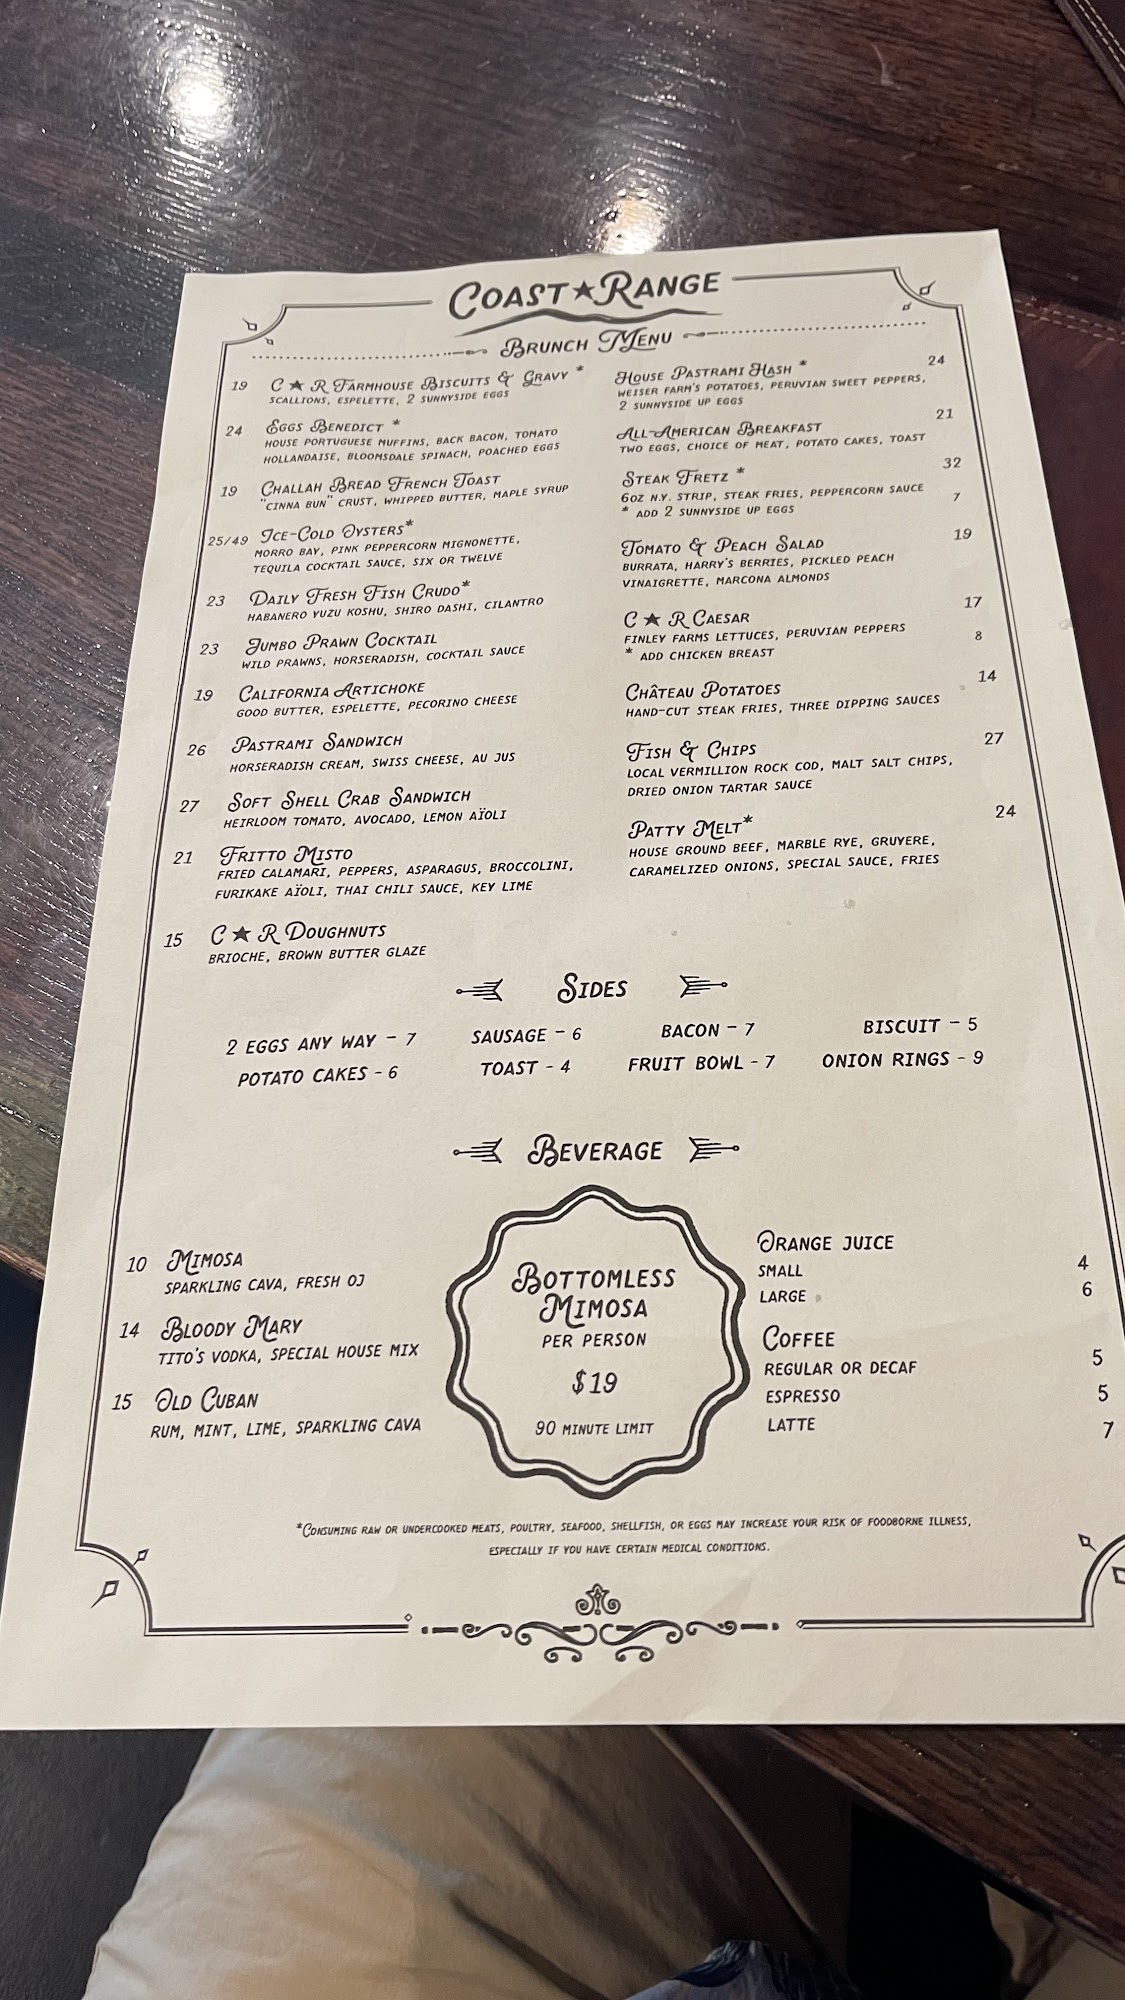 COAST★RANGE
BRUNCH MENU
19 C★R FARMHOUSE BISCUITS & GRAVY *
SCALLIONS, ESPELETTE, 2 SUNNYSIDE EGGS
24 EGGS BENEDICT *
HOUSE PORTUGUESE MUFFINS, BACK BACON, TOMATO
HOLLANDAISE, BLOOMSDALE SPINACH, POACHED EGGS
19 CHALLAH BREAD FRENCH TOAST
"CINNA BUN" CRUST, WHIPPED BUTTER, MAPLE SYRUP
25/49 ICE-COLD OYSTERS*
MORRO BAY, PINK PEPPERCORN MIGNONETTE,
TEQUILA COCKTAIL SAUCE, SIX OR TWELVE
23 DAILY FRESH FISH CRUDO*
HABANERO YUZU KOSHU, SHIRO DASHI, CILANTRO
23 JUMBO PRAWN COCKTAIL
WILD PRAWNS, HORSERADISH, COCKTAIL SAUCE
19 CALIFORNIA ARTICHOKE
GOOD BUTTER, ESPELETTE, PECORINO CHEESE
26 PASTRAMI SANDWICH
HORSERADISH CREAM, SWISS CHEESE, AU JUS
27 SOFT SHELL CRAB SANDWICH
HEIRLOOM TOMATO, AVOCADO, LEMON AÏOLI
21 FRITTO MISTO
FRIED CALAMARI, PEPPERS, ASPARAGUS, BROCCOLINI,
FURIKAKE AÏOLI, THAI CHILI SAUCE, KEY LIME
15 C★R DOUGHNUTS
BRIOCHE, BROWN BUTTER GLAZE
HOUSE PASTRAMI HASH * 24
WEISER FARM'S POTATOES, PERUVIAN SWEET PEPPERS,
2 SUNNYSIDE UP EGGS
ALL-AMERICAN BREAKFAST 21
TWO EGGS, CHOICE OF MEAT, POTATO CAKES, TOAST
STEAK FRETZ * 32
6OZ N.Y. STRIP, STEAK FRIES, PEPPERCORN SAUCE
* ADD 2 SUNNYSIDE UP EGGS 7
TOMATO & PEACH SALAD 19
BURRATA, HARRY'S BERRIES, PICKLED PEACH
VINAIGRETTE, MARCONA ALMONDS
C★R CAESAR 17
FINLEY FARMS LETTUCES, PERUVIAN PEPPERS
* ADD CHICKEN BREAST 8
CHÂTEAU POTATOES 14
HAND-CUT STEAK FRIES, THREE DIPPING SAUCES
FISH & CHIPS 27
LOCAL VERMILLION ROCK COD, MALT SALT CHIPS,
DRIED ONION TARTAR SAUCE
PATTY MELT* 24
HOUSE GROUND BEEF, MARBLE RYE, GRUYERE,
CARAMELIZED ONIONS, SPECIAL SAUCE, FRIES
SIDES
2 EGGS ANY WAY - 7 SAUSAGE - 6 BACON - 7 BISCUIT - 5
POTATO CAKES - 6 TOAST - 4 FRUIT BOWL - 7 ONION RINGS - 9
BEVERAGE
10 MIMOSA
SPARKLING CAVA, FRESH OJ
14 BLOODY MARY
TITO'S VODKA, SPECIAL HOUSE MIX
15 OLD CUBAN
RUM, MINT, LIME, SPARKLING CAVA
BOTTOMLESS
MIMOSA
PER PERSON
$19
90 MINUTE LIMIT
ORANGE JUICE
SMALL 4
LARGE 6
COFFEE
REGULAR OR DECAF 5
ESPRESSO 5
LATTE 7
*CONSUMING RAW OR UNDERCOOKED MEATS, POULTRY, SEAFOOD, SHELLFISH, OR EGGS MAY INCREASE YOUR RISK OF FOODBORNE ILLNESS,
ESPECIALLY IF YOU HAVE CERTAIN MEDICAL CONDITIONS.